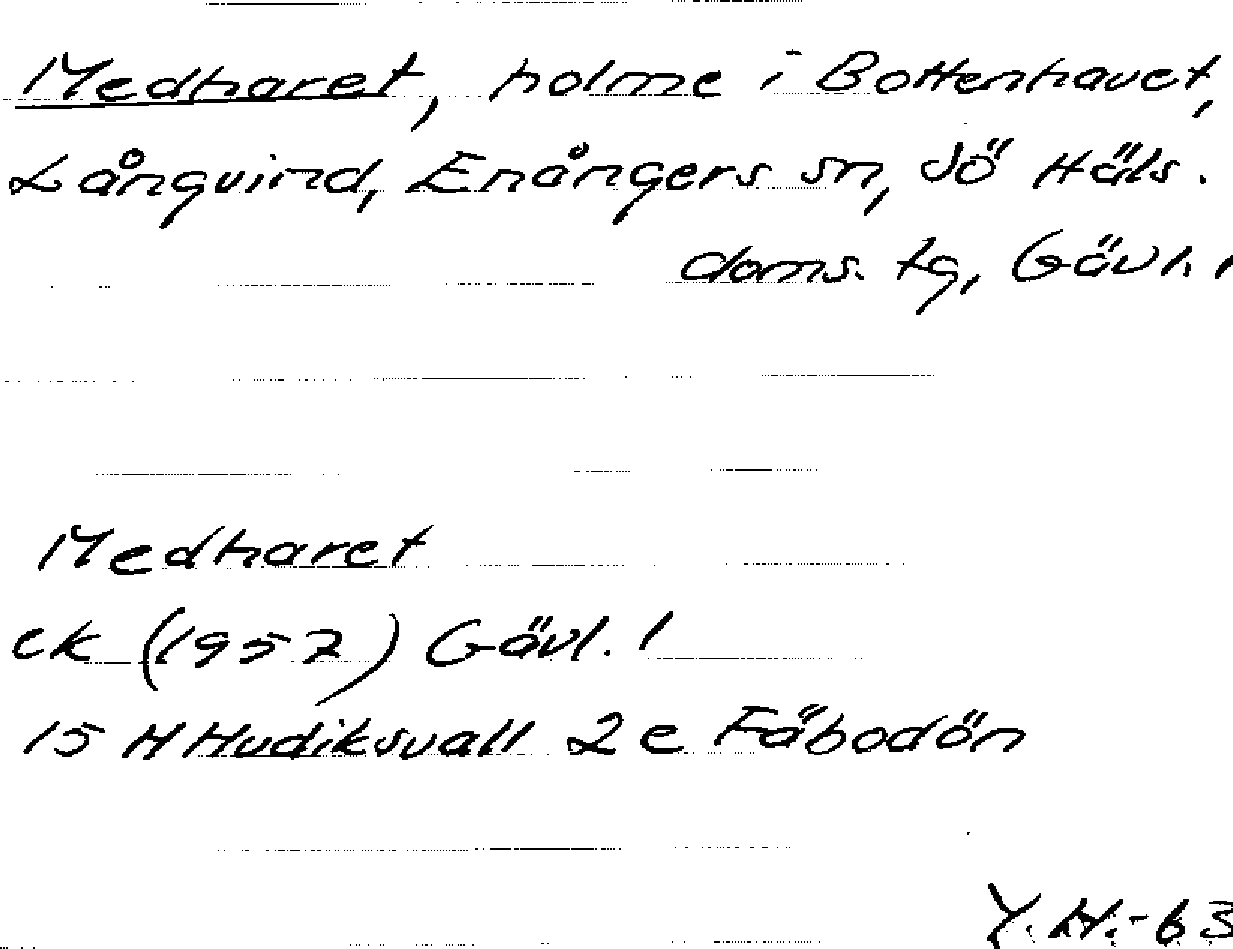 Medharet, holme i Bottenhavet,
Långvind, Enångers sn, Sö Häls.
doms. tg, Gävl. l
Medharet
ek (1957) Gävl. l
15 H Hudiksvall 2 e Fäbodön
Y. H. -63